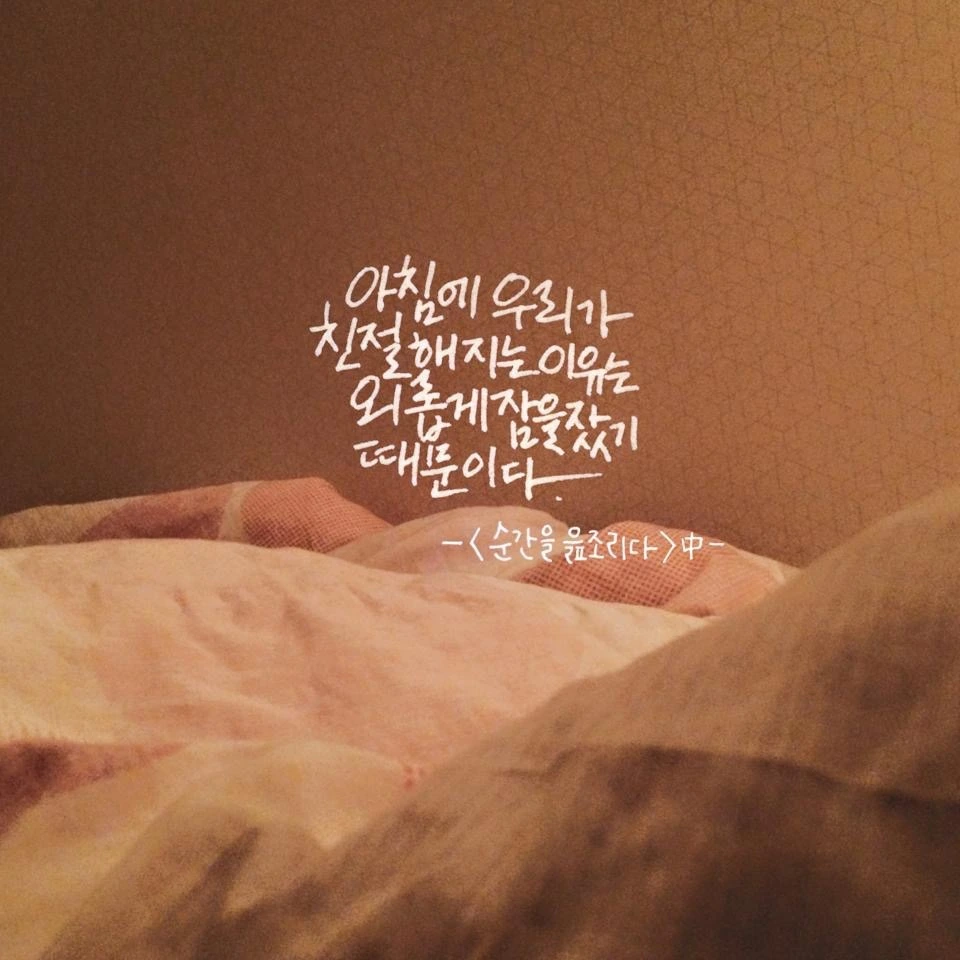 아침에 우리가
친절해지는 이유는
외롭게 잠을 잤기
때문이다.
-<순간을 읊조리다>中-